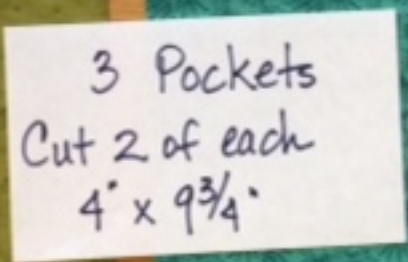 3 Pockets
Cut 2 of each
4" x 9¾"